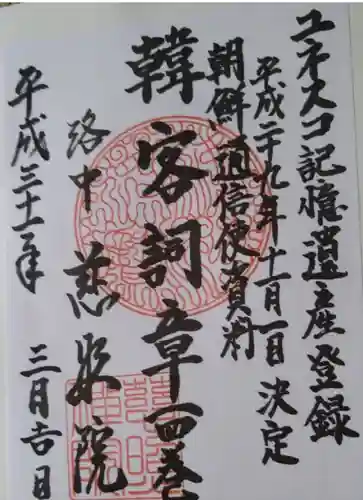 ユネスコ記憶遺産登録
平成二十九年十一月一日 決定
朝鮮通信使資料
韓客詞章四巻
洛中 慈照院
平成三十一年 三月吉日